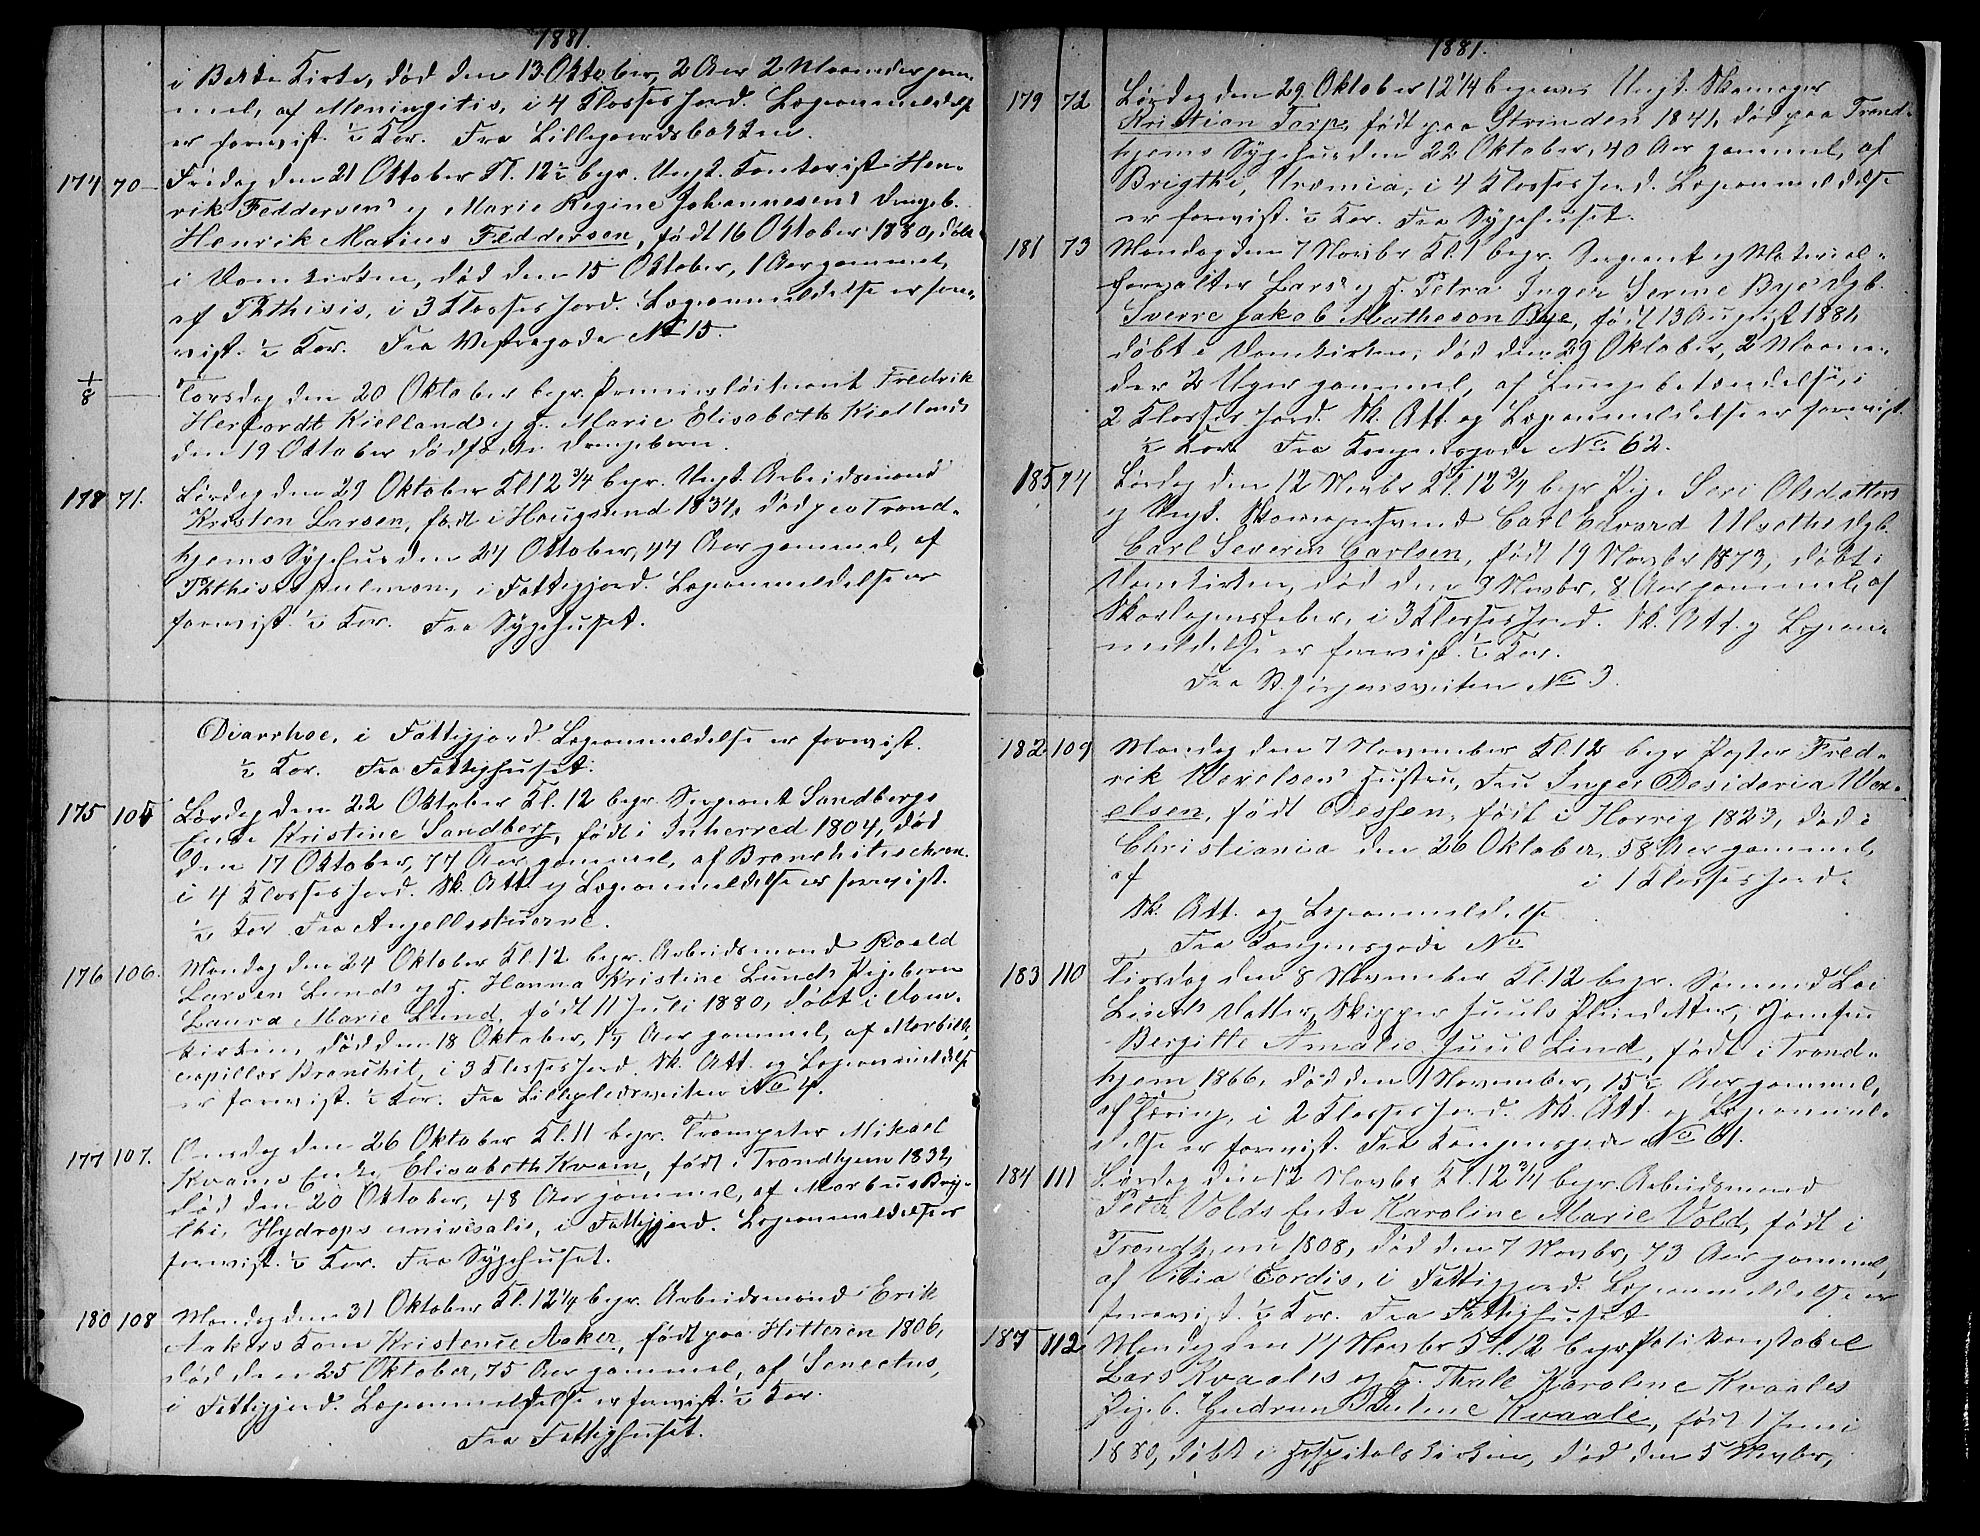 1881.
i Bakke Kirke, død den 13 Oktober, 2 Aar 2 Maaneder gam-
mel, af Meningitis, i 4 Klasses Jord. Lægeanmeldelse
er forevist. ½ Kor. Fra Lillegaardsbakken.
174 70 Fredag den 21 Oktober Kl. 12½ begr. Ungk. Kontorist Hen-
rik Feddersens og Marie Regine Johannesens Drengeb.
Henrik Marius Feddersen, født 16 Oktober 1880, døbt
i Domkirken, død den 15 Oktober, 1 Aar gammel,
af Phthisis, i 3 Klasses Jord. Lægeanmeldelse er fore-
vist. ½ Kor. Fra Vestregade No 15.
1/8 Torsdag den 20 Oktober begr. Premierløitnant Fredrik
Herfordt Kiellands og H. Marie Elisabeth Kiellands
den 19 Oktober dødfødte Drengebarn.
178 71. Lørdag den 29 Oktober Kl 12¾ begr. Ungk. Arbeidsmand
Kristen Larsen, født i Haugsund 1837, død paa Trond-
hjems Sygehus den 24 Oktober, 44 Aar gammel, af
Phthisis pulmon., i Fattigjord. Lægeanmeldelse er
forevist. ½ Kor. Fra Sygehuset.
Diarrhoe, i Fattigjord. Lægeanmeldelse er forevist.
½ Kor. Fra Fattighuset.
175 105 Lørdag den 22 Oktober Kl. 12 begr. Sergeant Sandbergs
Enke Kristine Sandberg, født i Inherred 1804, død
den 17 Oktober, 77 Aar gammel, af Bronchitis chron.
i 4 Klasses Jord. Sk. Att. og Lægeanmeldelse er forevist.
½ Kor Fra Angellsstuerne.
176 106. Mandag den 24 Oktober Kl. 12 begr. Arbeidsmand Roald
Larsen Lunds og H. Hanna Kristine Lunds Pigebarn
Laura Marie Lund, født 11 Juli 1880, døbt i Dom-
kirken, død den 18 Oktober, 1¼ Aar gammel, af Morbilli,
capillær Bronchit, i 3 Klasses Jord. Sk. Att. og Lægeanmeldelse
er forevist. ½ Kor. Fra No 4.
177 107. Onsdag den 26 Oktober Kl. 11 begr. Trompeter Mikael
Kvams Enke, Elisabeth Kvam, født i Trondhjem 1832,
død den 20 Oktober, 48 Aar gammel, af Morbus Brig-
thi, Hydrops univisalis, i Fattigjord. Lægeanmeldelse er
forevist. ½ Kor. Fra Sygehuset.
180 108 Mandag den 31 Oktober Kl. 12¼ begr. Arbeidsmand Erik
Aakers Kone Kristense Aaker, født paa Hitteren 1806,
død den 25 Oktober, 75 Aar gammel, af Senectus,
i Fattigjord. Lægeanmeldelse er forevist. ½ Kor.
Fra Fattighuset.
1881.
179 72 Lørdag den 29 Oktober 12¼ begraves Ungk. Skomager
Kristian Torp, født paa Strinden 1841, død paa Trond-
hjems Sygehus den 22 Oktober, 40 Aar gammel, af
Brigthi, Uræmia, i 4 Klasses Jord. Lægeanmeldelse
er forevist. ½ Kor. Fra Sygehuset.
181 73 Mandag den 7 Novbr Kl. 1 begr. Sergeant og Material-
forvalter Lars og H. Petra Inger Serine Byes Dgb.
Sverre Jakob Matheson Bye, født 13 August 1881,
døbt i Domkirken, død den 29 Oktober, 2 Maane-
der 2 Uger gammel, af Lungebetændelse, i
2 Klasses Jord. Sk. Att. og Lægeanmeldelse er forevist.
½ Kor. Fra Kongensgade No 62.
185 74 Lørdag den 12 Novbr Kl. 12¾ begr Pige Seri Olsdatters
og Ungk. Skomagersvend Carl Edvard Ulseths Dgb.
Carl Severin Carlsen, født 19 Novbr 1873, døbt i
Domkirken, død den 9 Novbr, 8 Aar gammel, af
Skarlagensfeber, i 3 Klasses Jord. Sk. Att. og Lægean-
meldelse er forevist. ½ Kor.
Fra St. Jørgensveiten No 3.
182 109 Mandag den 7 November Kl. 12 begr Pastor Fred-
rik Wexelsens Hustru, Fru Inger Desideria Wex-
elsen, født Dessen, født i Horrig 1823, død i
Christiania den 26 Oktober, 58 Aar gammel,
af i 1 Klasses Jord.
Sk. Att. og Lægeanmeldelse
Fra Kongensgade No
183 110 Tirsdag den 8 November Kl. 12 begr. Sømand
Linds Datter, Skipper Juuls Pleiedatter, Jomfru
Bergitte Amalie Juul Lind, født i Trond-
hjem 1866, død den 1 November, 15½ Aar gammel,
af Tæring, i 2 Klasses Jord. Sk. Att. og Lægeanmel-
delse er forevist. Fra Kongensgade No 61.
184 111 Lørdag den 12 Novbr Kl. 12¾ begr. Arbeidsmand
Peter Volds Enke Karoline Marie Vold, født i
Trondhjem 1808, død den 7 Novbr, 73 Aar gammel,
af Vitia Cordis, i Fattigjord. Lægeanmeldelse er
forevist. ½ Kor. Fra Fattighuset
187 112 Mandag den 14 Novbr Kl. 12 begr Politikonstabel
Lars Kvaales og H. Thale Karoline Kvaales
Pigeb. Gudrun Pauline Kvaale, født 1 Juni
1880, døbt i Hospitalskirken, død den 5 Novbr,